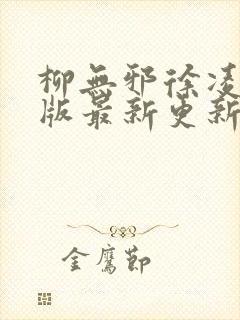 柳無邪徐凌
版最新更新
金鷹節